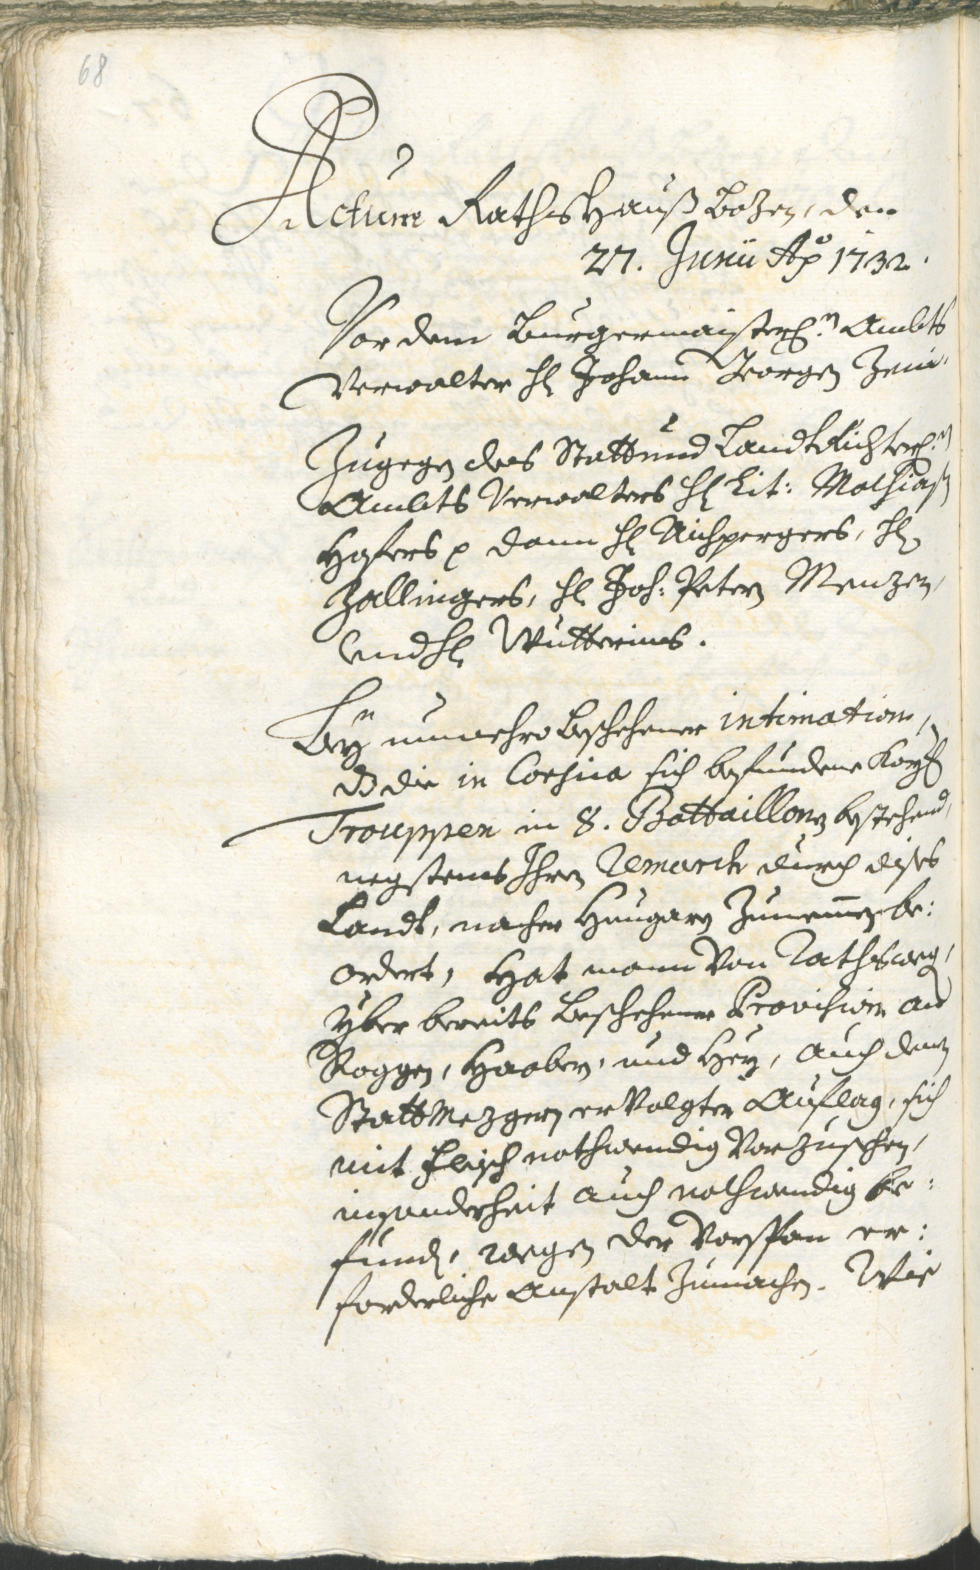 68
Actum RathsHauß Bozen, den
27. Junii Aō 1732.
Vor dem Burgermaisterl:n Ambts
Verwalter H: Johann Georgen
Zugegen des Statt und Landtrichterl:n
Ambts Verwalters H: Lit: Mathiaß
Hofers p dann H: Aichpergers, H:
Zallingers, H: Joh: Peter Menzen,
und H: Wutterins.
Bey nunmehro beschehener intimation,
dz die in Corsica sich befundene Kays:
Trouppen in 8. Battaillons bestehend,
negstens Ihren Remarch durch dises
Landt, nacher Hungarn zunemmen be:
ordert, Hat mann Von Rathswegen,
yber bereits beschehene Provision an
Roggen, Haaber, und Hey, auch denen
Statt Mezgern ervolgten Auflag, sich
mit Fleisch nothwendig Vorzusehen,
insonderheit auch nothwendig be:
funden, wegen der Vorspan er:
forderliche Anstalt zumachen. Wie